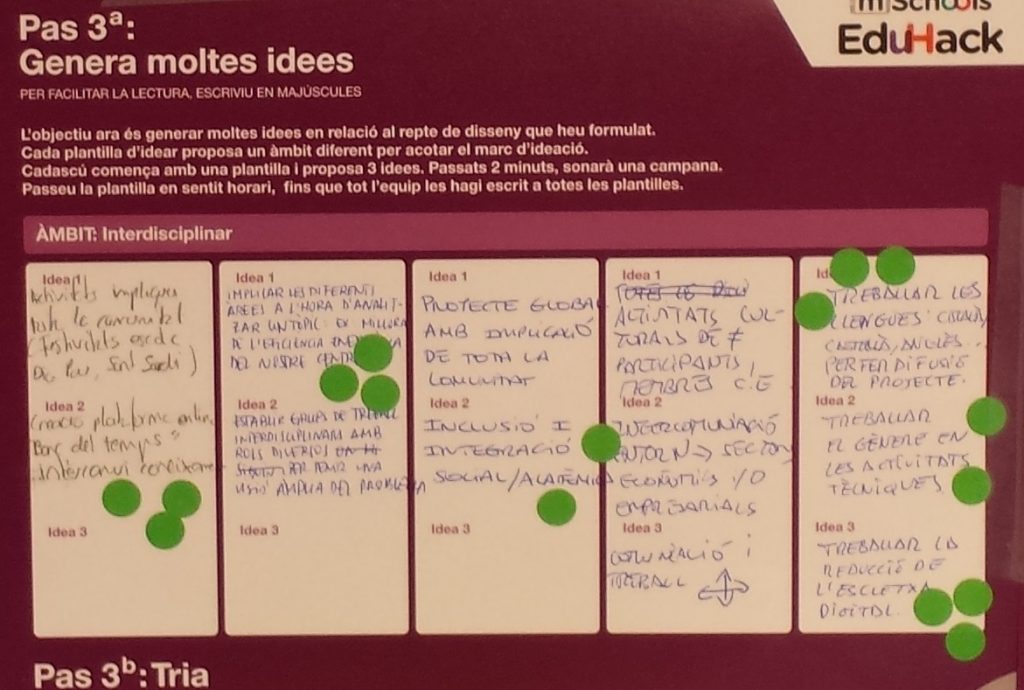 mSchools
EduHack
Pas 3ª:
Genera moltes idees
PER FACILITAR LA LECTURA, ESCRIVIU EN MAJÚSCULES
L'objectiu ara és generar moltes idees en relació al repte de disseny que heu formulat.
Cada plantilla d'idear proposa un àmbit diferent per acotar el marc d'ideació.
Cadascú comença amb una plantilla i proposa 3 idees. Passats 2 minuts, sonarà una campana.
Passeu la plantilla en sentit horari, fins que tot l'equip les hagi escrit a totes les plantilles.
ÀMBIT: Interdisciplinar
Idea 1
Activitats impliquen
tota la comunitat
Idea 2
plataforma online
"Banc del temps"
Idea 3
Idea 1
IMPLICAR LES DIFERENTS
ÀREES A L'HORA D'ANALIT-
ZAR UN TÒPIC: EX MILLORA
DE L'EFICIÈNCIA
DEL NOSTRE CENTRE
Idea 2
ESTABLIR GRUPS DE TREBALL
INTERDISCIPLINARS AMB
ROLS DIVERSOS
PER TENIR UNA
VISIÓ ÀMPLIA DEL PROBLEMA
Idea 3
Idea 1
PROJECTE GLOBAL
AMB IMPLICACIÓ
DE TOTA LA
COMUNITAT
Idea 2
INCLUSIÓ I
INTEGRACIÓ
SOCIAL/ACADÈMICA
Idea 3
Idea 1
ACTIVITATS CUL-
TURALS DE ≠
PARTICIPANTS,
MEMBRES C.E
Idea 2
INTERCOMUNICACIÓ
ENTORN → SECTORS
ECONÒMICS I/O
EMPRESARIALS
Idea 3
COMUNICACIÓ i
TREBALL
TREBALLAR LES
LLENGUES: CATALÀ,
CASTELLÀ, ANGLÈS...
PER FER DIFUSIÓ
DEL PROJECTE.
Idea 2
TREBALLAR
EL GÈNERE EN
LES ACTIVITATS
TÈCNIQUES
Idea 3
TREBALLAR LA
REDUCCIÓ DE
L'ESCLETXA
DIGITAL.
Pas 3b: Tria